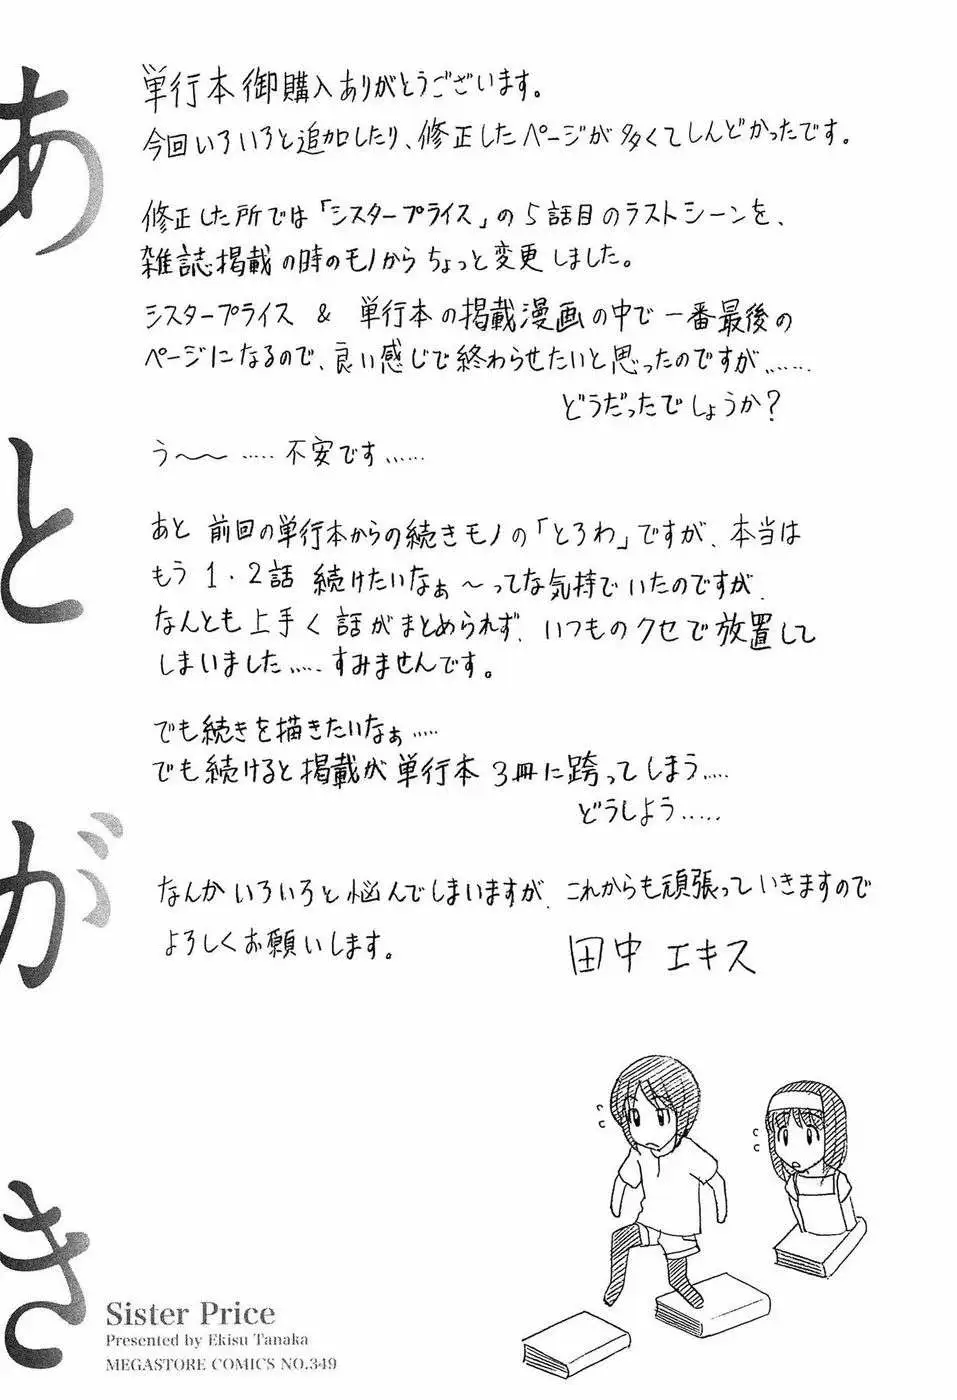 あとがき
単行本御購入ありがとうございます。
今回いろいろと追加したり、修正したページが多くてしんどかったです。
修正した所では「シスタープライス」の5話目のラストシーンを、
雑誌掲載の時のモノからちょっと変更しました。
シスタープライス & 単行本の掲載漫画の中で一番最後の
ページになるので、良い感じで終わらせたいと思ったのですが……
どうだったでしょうか?
う〜〜……不安です……
あと 前回の単行本からの続きモノの「とろわ」ですが、本当は
もう1・2話 続けたいなぁ〜ってな気持でいたのですが、
なんとも上手く話がまとめられず、いつものクセで放置して
しまいました……すみませんです。
でも続きを描きたいなぁ……
でも続けると掲載が単行本3冊に跨ってしまう……
どうしよう……
なんかいろいろと悩んでしまいますが、これからも頑張っていきますので
よろしくお願いします。
田中エキス
Sister Price
Presented by Ekisu Tanaka
MEGASTORE COMICS NO.349